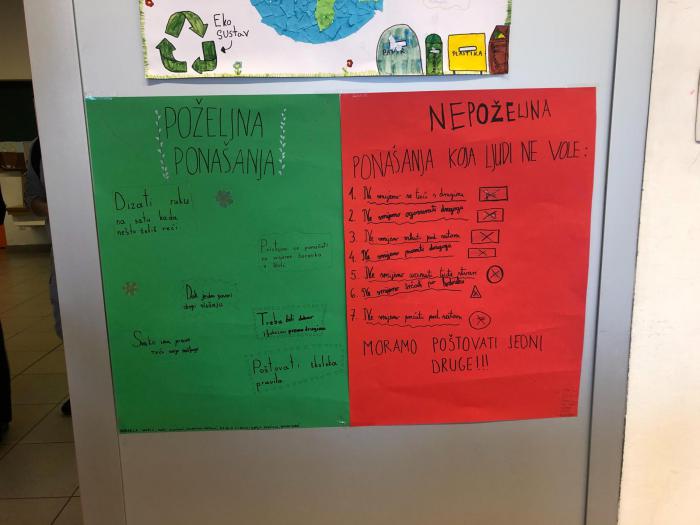 Eko
sustav
PAPIR
PLASTIKA
POŽELJNA
PONAŠANJA
Dizati ruku
na satu kada
nešto želiš reći
Pristojno se ponašati
za vrijeme boravka
u školi
Dok jedan govori
drugi slušaju
Treba biti dobar
prema drugima
Svako ima pravo
reći svoje mišljenje
Poštovati školska
pravila
NEPOŽELJNA
PONAŠANJA KOJA LJUDI NE VOLE:
1. Ne smijemo se tući s drugima
2. Ne smijemo ogovarati drugoga
3. Ne smijemo vikati pod satom
4. Ne smijemo psovati drugoga
5. Ne smijemo uzimati tuđe stvari
6. Ne smijemo trčati po hodniku
7. Ne smijemo pričati pod satom
MORAMO POŠTOVATI JEDNI
DRUGE!!!